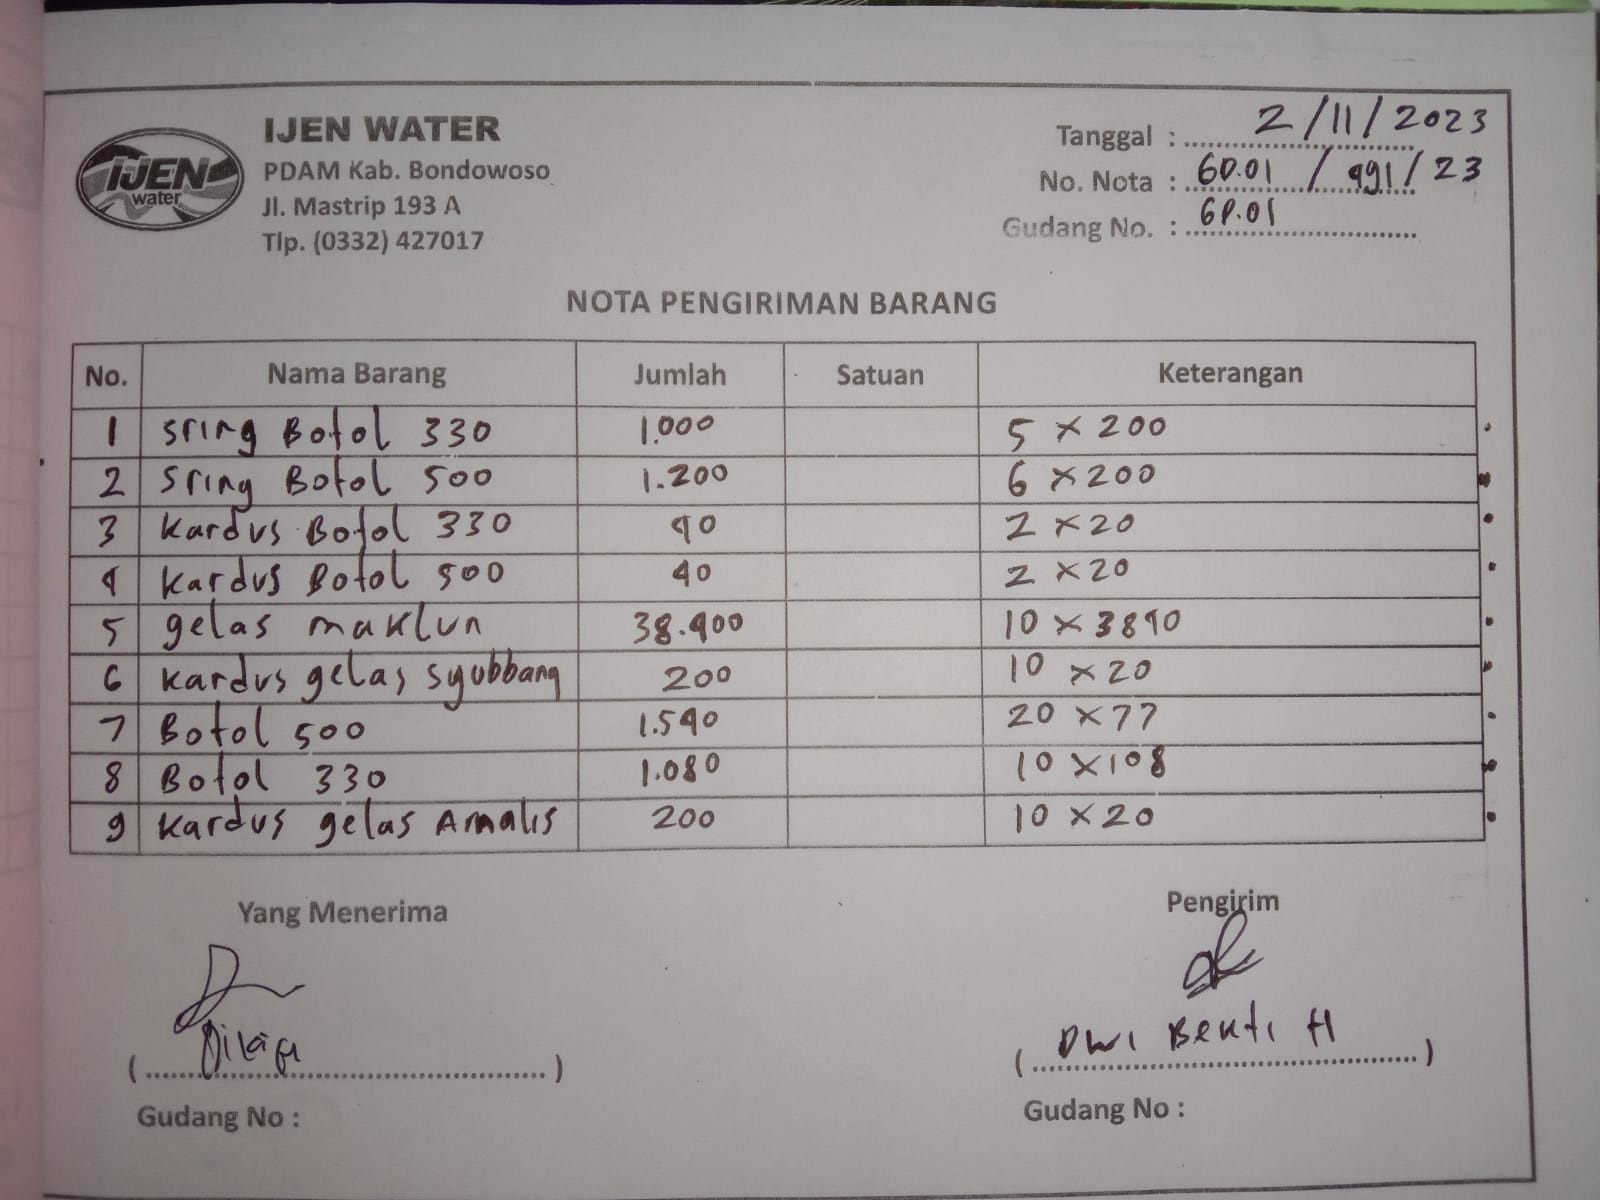 IJEN WATER
IJEN
water
PDAM Kab. Bondowoso
Jl. Mastrip 193 A
Tlp. (0332) 427017
Tanggal : 2/11/2023
No. Nota : 60.01 / 491/ 23
Gudang No. : 60.01
NOTA PENGIRIMAN BARANG
No. Nama Barang Jumlah Satuan Keterangan
1 Sring Botol 330 1.000 5 x 200
2 Sring Botol 500 1.200 6 x 200
3 Kardus Botol 330 40 2 x 20
4 Kardus Botol 500 40 2 x 20
5 gelas maklun 38.400 10 x 3840
6 Kardus gelas Syubbang 200 10 x 20
7 Botol 500 1.540 20 x 77
8 Botol 330 1.080 10 x 108
9 Kardus gelas Amalis 200 10 x 20
Yang Menerima Pengirim
Dwi Bekti H
Gudang No : Gudang No :